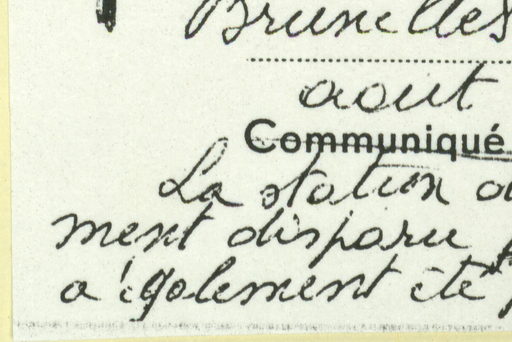 Bruxelles
aout
Communiqué
La station
ment disparu
a également été